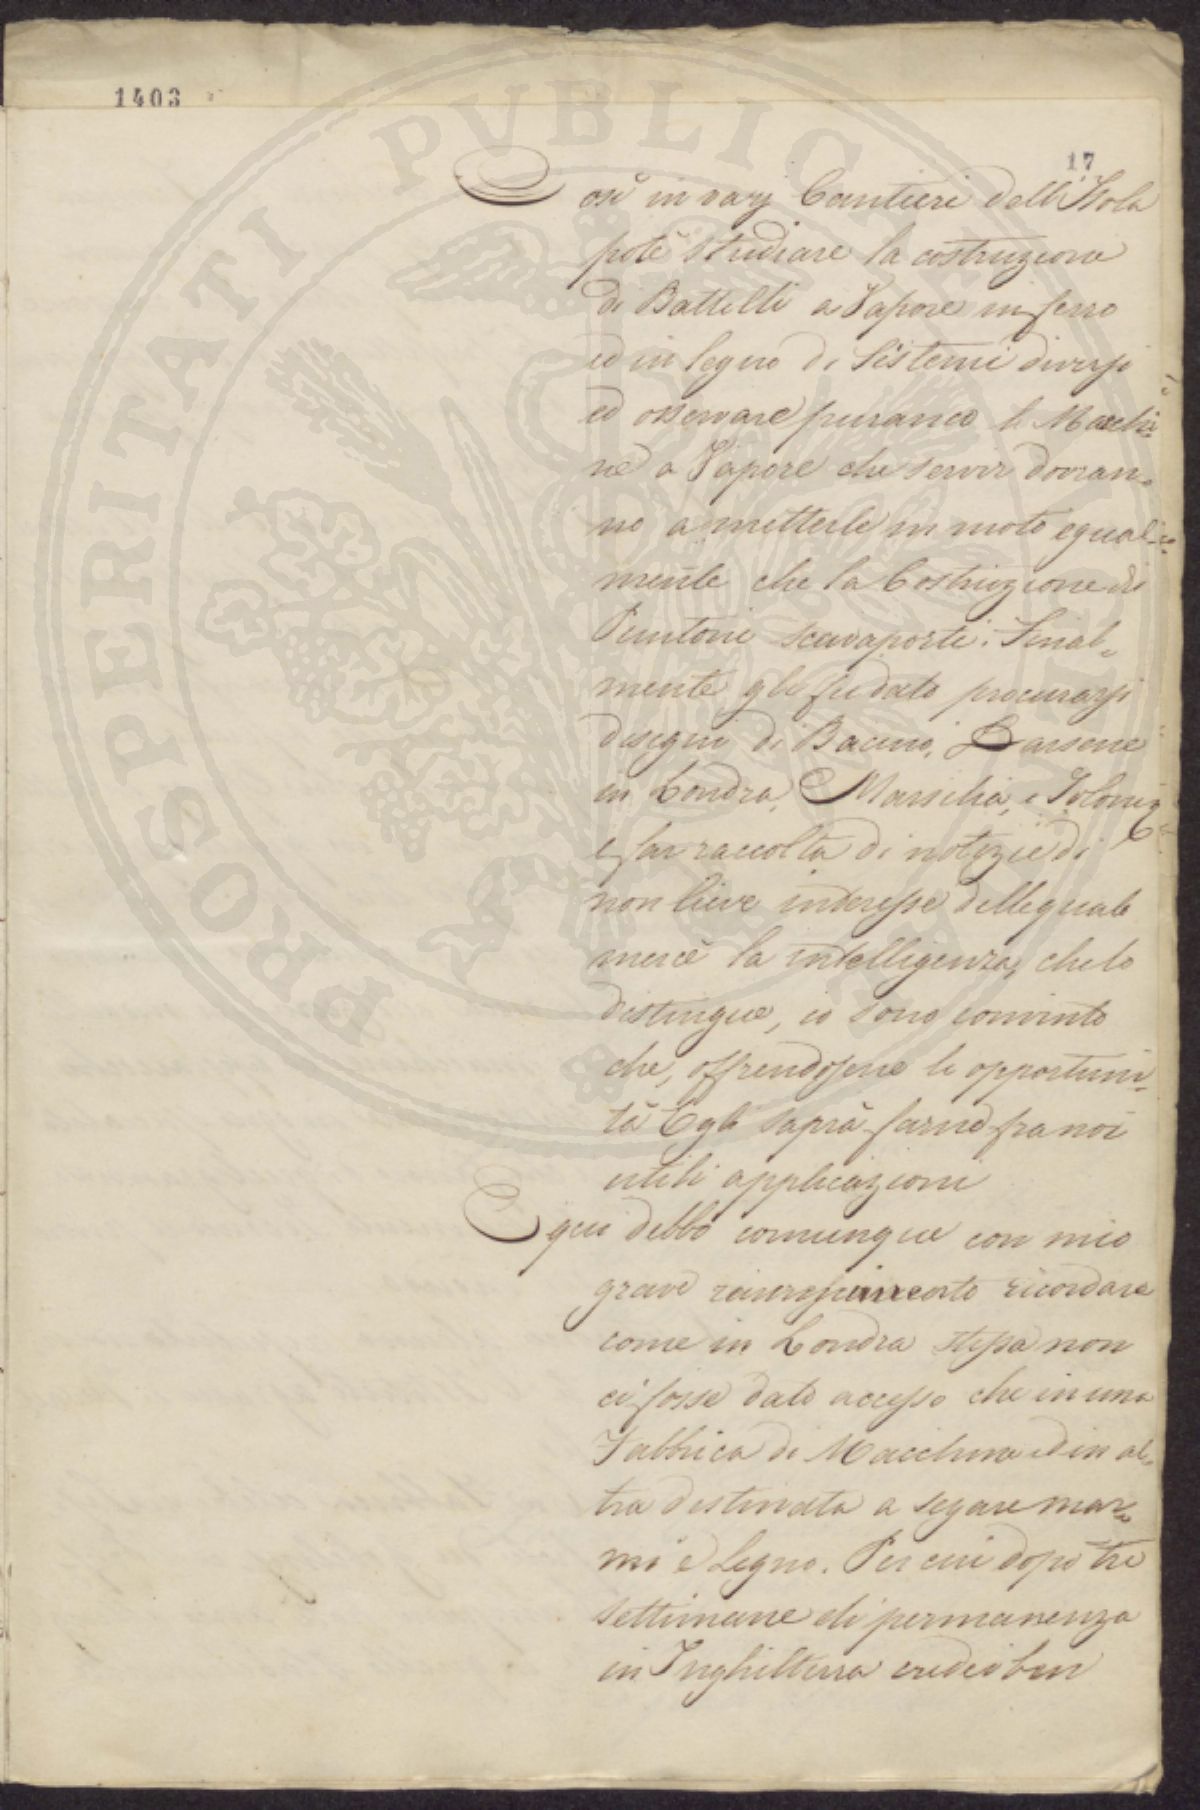 1403
17
Così in varj Cantieri dell'Isola
potè studiare la costruzione
di Battelli a Vapore in ferro
ed in legno di Sistemi diversi
ed osservare puranco le Macchi-
ne a Vapore che servir dovran-
no a metterle in moto egual-
mente che la Costruzione di
Puntoni scavaporti. Final-
mente gli fu dato procurarsi
disegni di Bacino, Darsene
in Londra, Marsilia, e Tolone
e far raccolta di notizie di
non lieve interesse delle quali
mercè la intelligenza, che lo
distingue, io sono convinto
che, offrendosene le opportuni-
tà Egli saprà farne fra noi
utili applicazioni
E qui debbo comunque con mio
grave rincrescimento ricordare
come in Londra stessa non
ci fosse dato accesso che in una
Fabbrica di Macchine ed in al-
tra destinata a segare mar-
mi e Legno. Per cui dopo tre
settimane di permanenza
in Inghilterra credei ben
PROSPERITATI PVBLICAE